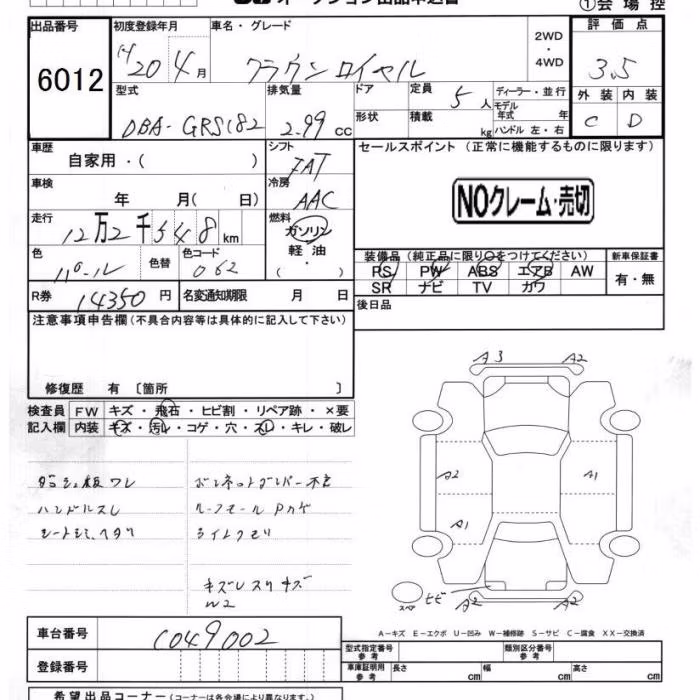 オークション出品申込書
①会場控
出品番号
6012
初度登録年月
H20年4月
車名・グレード
クラウン ロイヤル
2WD
・
4WD
評価点
3.5
型式
DBA-GRS182
排気量
2.99cc
ドア
形状
定員
5人
積載
kg
ディーラー・並行
モデル
年式 年
ハンドル 左・右
外装 内装
C D
車歴
自家用・( )
シフト
FAT
セールスポイント(正常に機能するものに限ります)
NOクレーム・売切
車検
年 月( 日)
冷房
AAC
走行
12万2千548km
燃料
ガソリン
軽油
( )
色
パール
色替
色コード
062
装備品(純正品に限り○をつけてください)
PS PW ABS エアB AW
SR ナビ TV カワ
新車保証書
有・無
R券
14350円
名変通知期限 月 日
後日品
注意事項申告欄(不具合内容等は具体的に記入して下さい)
修復歴 有 〔箇所 〕
検査員
記入欄
FW キズ・飛石・ヒビ割・リペア跡・×要
内装 キズ・汚レ・コゲ・穴・スレ・キレ・破レ
ダッシュ板ワレ
ハンドルスレ
シートシミ、ヘタリ
ライトクモリ
キズレスリキズ
W2
A3 A2
A2 A1
A1
スペア
ヒビ
A2 A2
A-キズ E-エクボ U-凹み W-補修跡 S-サビ C-腐食 XX-交換済
車台番号
C049002
登録番号
型式指定番号
参考
類別区分番号
参考
車庫証明用
参考
長さ cm
幅 cm
高さ cm
希望出品コーナー(コーナーは各会場により異なります。)